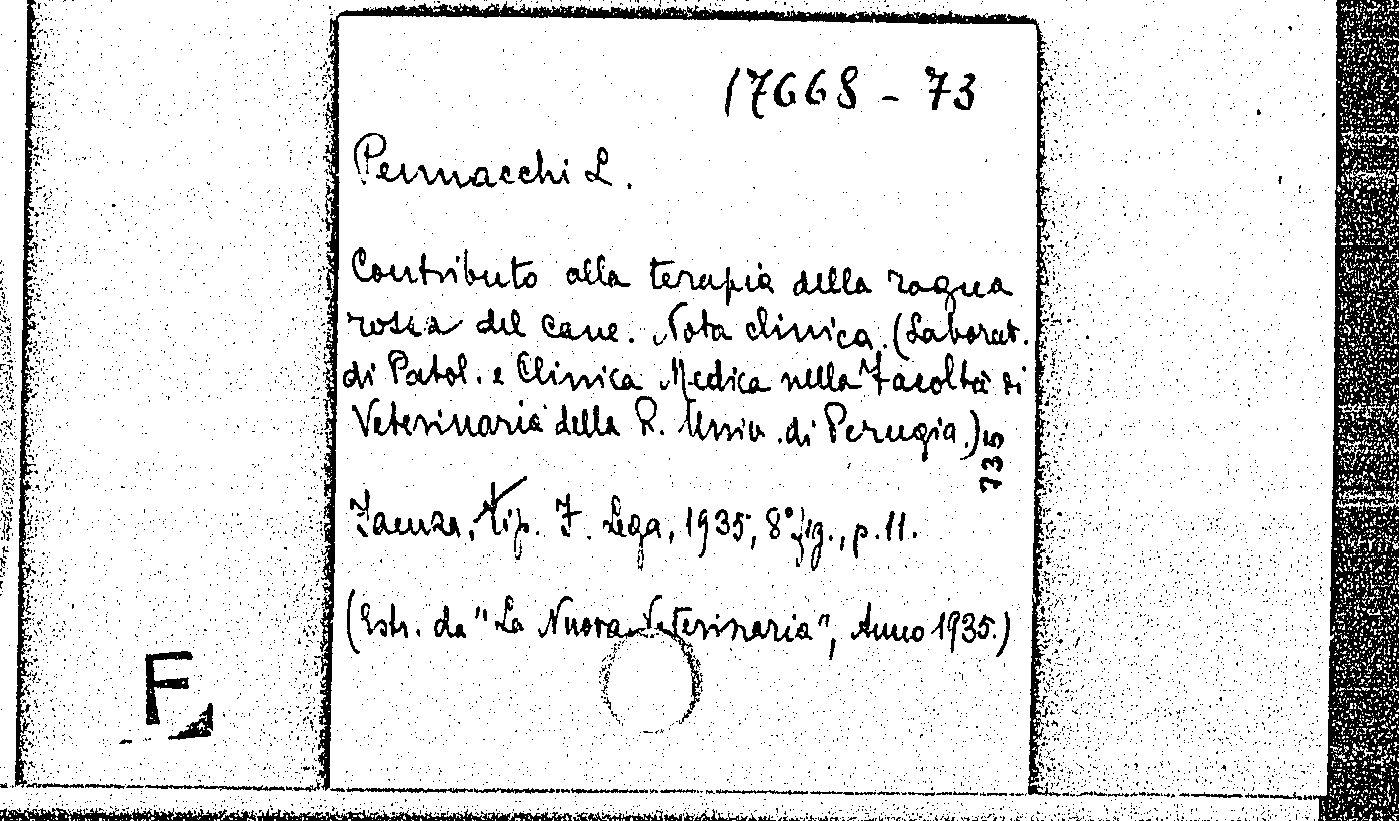 17668 - 73
Pennacchi L.
Contributo alla terapia della rogna
rossa del cane. Nota clinica. (Laborat.
di Patol. e Clinica Medica nella Facoltà di
Veterinaria della R. Univ. di Perugia.)
735
Faenza, tip. F. Lega, 1935, 8° fig., p. 11.
(Estr. da "La Nuova Veterinaria", Anno 1935.)
F